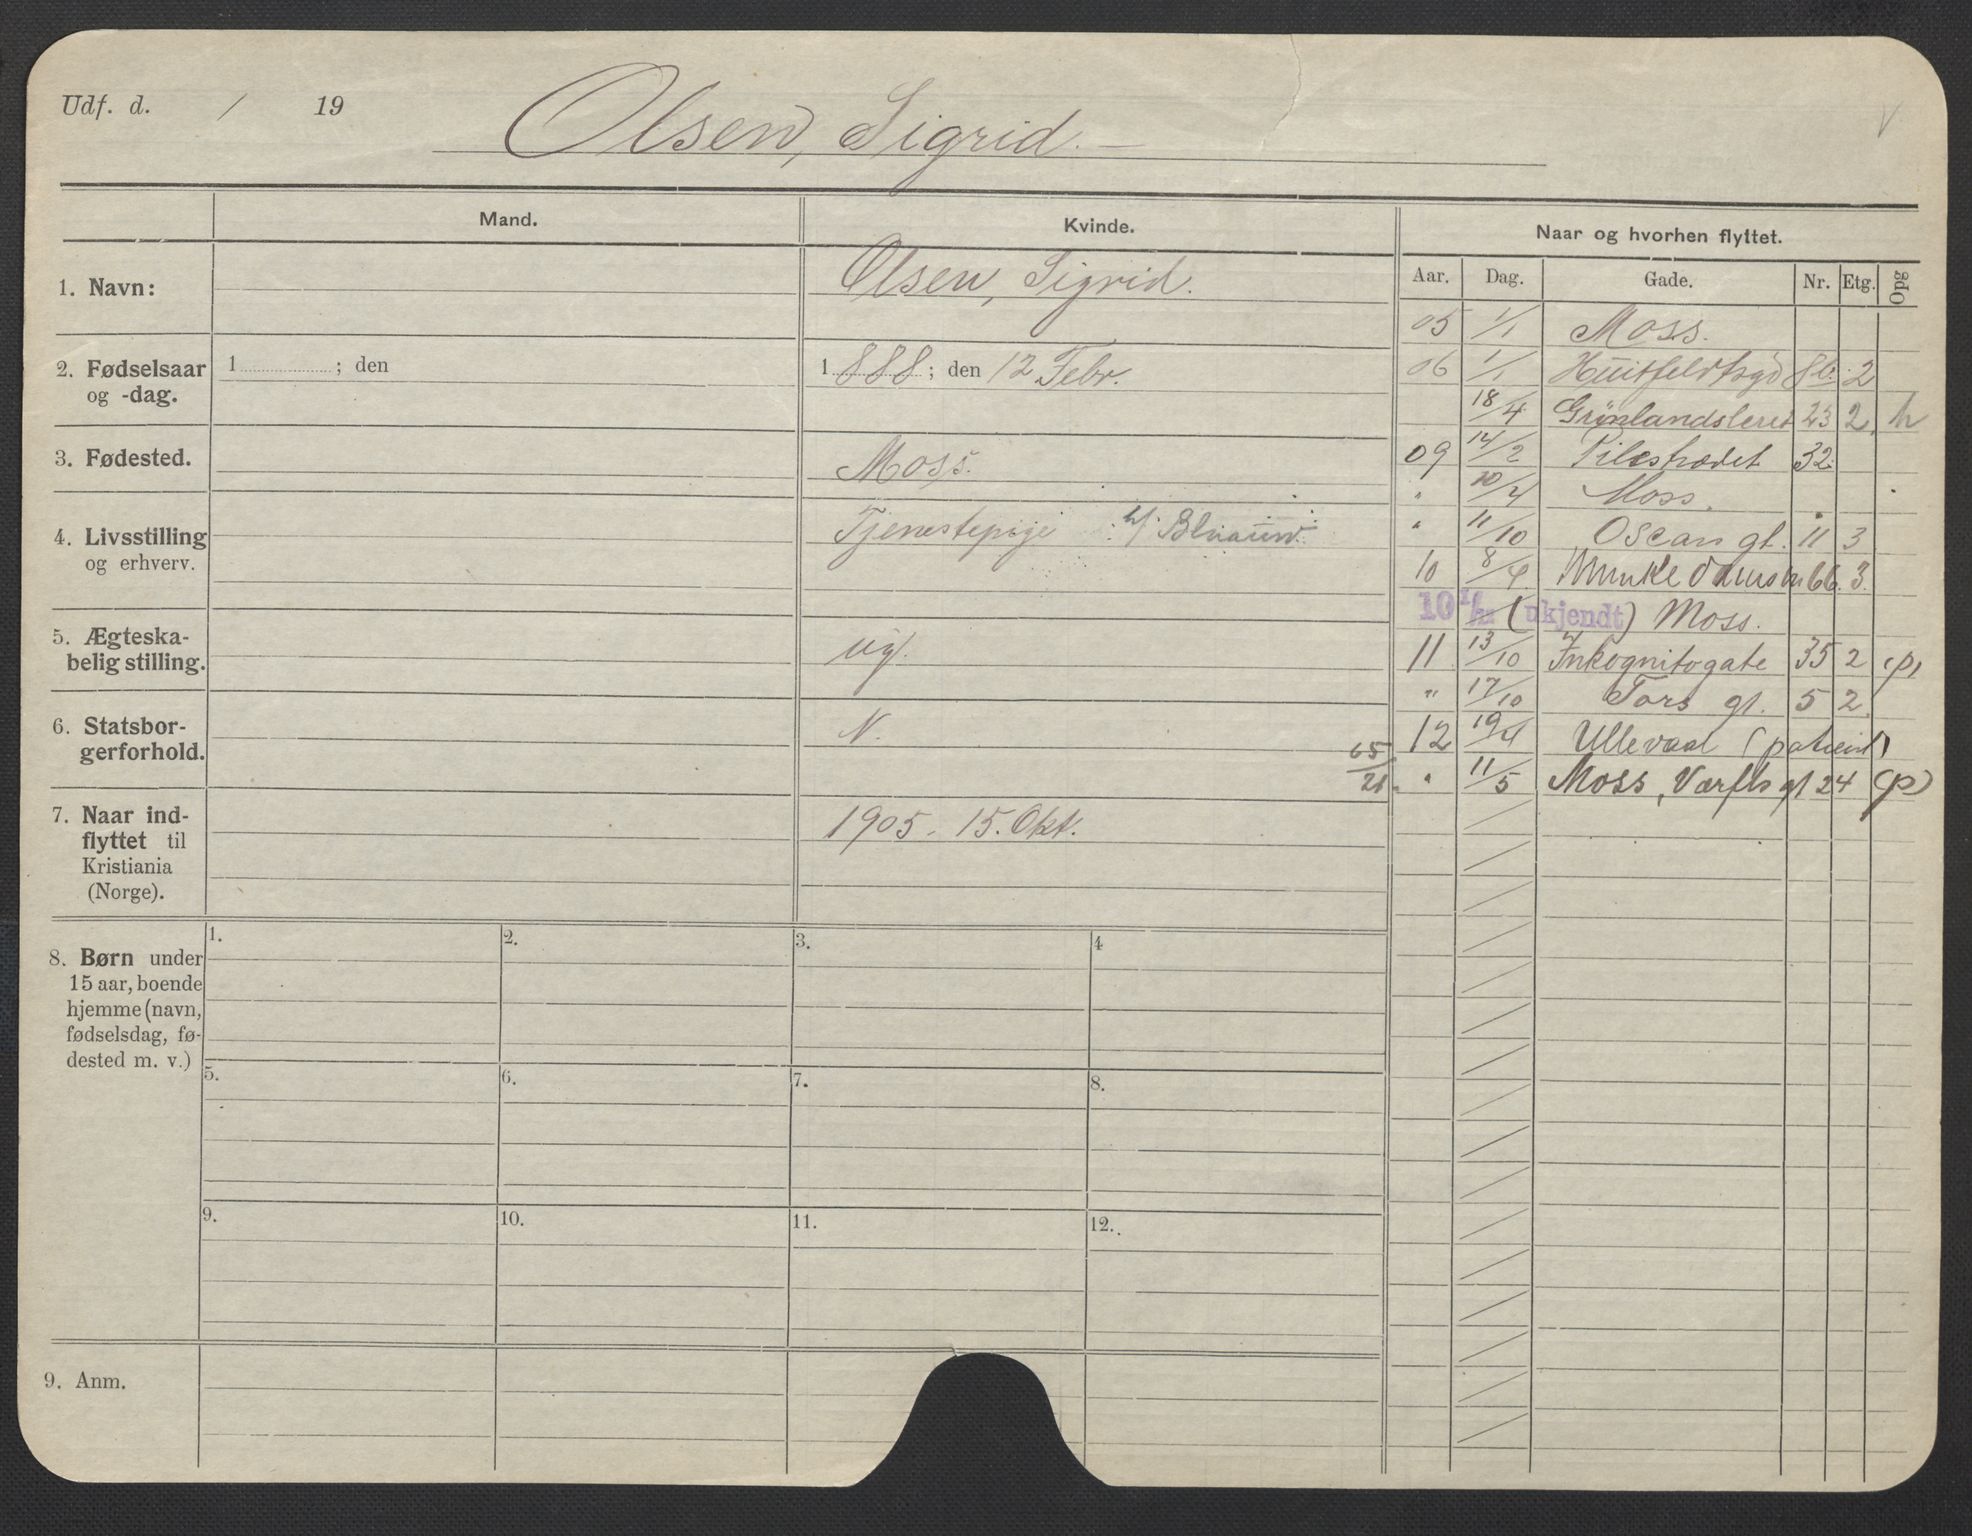 Udf. d. / 19
Olsen, Sigrid.
Mand.
Kvinde.
Naar og hvorhen flyttet.
Aar. Dag. Gade. Nr. Etg. Opg
1. Navn:
Olsen, Sigrid.
2. Fødselsaar og -dag.
1 ; den
1888; den 12 Febr.
3. Fødested.
Moss.
4. Livsstilling og erhverv.
Tjenestepige
5. Ægteska-
belig stilling.
ug.
6. Statsbor-
gerforhold.
N.
7. Naar ind-
flyttet til
Kristiania
(Norge).
1905. 15. Okt.
05 1/1 Moss.
06 1/1 Huitfeldtsgd 8b. 2
18/4 Grønlandsleret 23 2. h
09 14/2 Pilestrædet 32.
" 20/4 Moss.
" 11/10 Oscars gt. 11 3
10 8/4 Munkedamsv 66. 3.
10 (ukjendt) Moss.
11 13/10 Inkognitogate 35 2 (p)
" 17/10 Tors gt. 5 2
12 19/4 Ullevaal (patient)
65/21 " 11/5 Moss, Værfts gt 24 (p)
8. Børn under
15 aar, boende
hjemme (navn,
fødselsdag, fø-
dested m. v.)
1. 2. 3. 4
5. 6. 7. 8.
9. 10. 11. 12.
9. Anm.